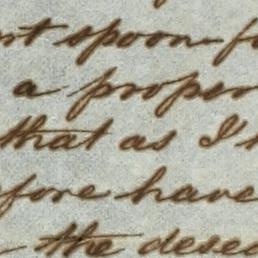 nt spoon fo
a proper
that as I
efore have
the desec